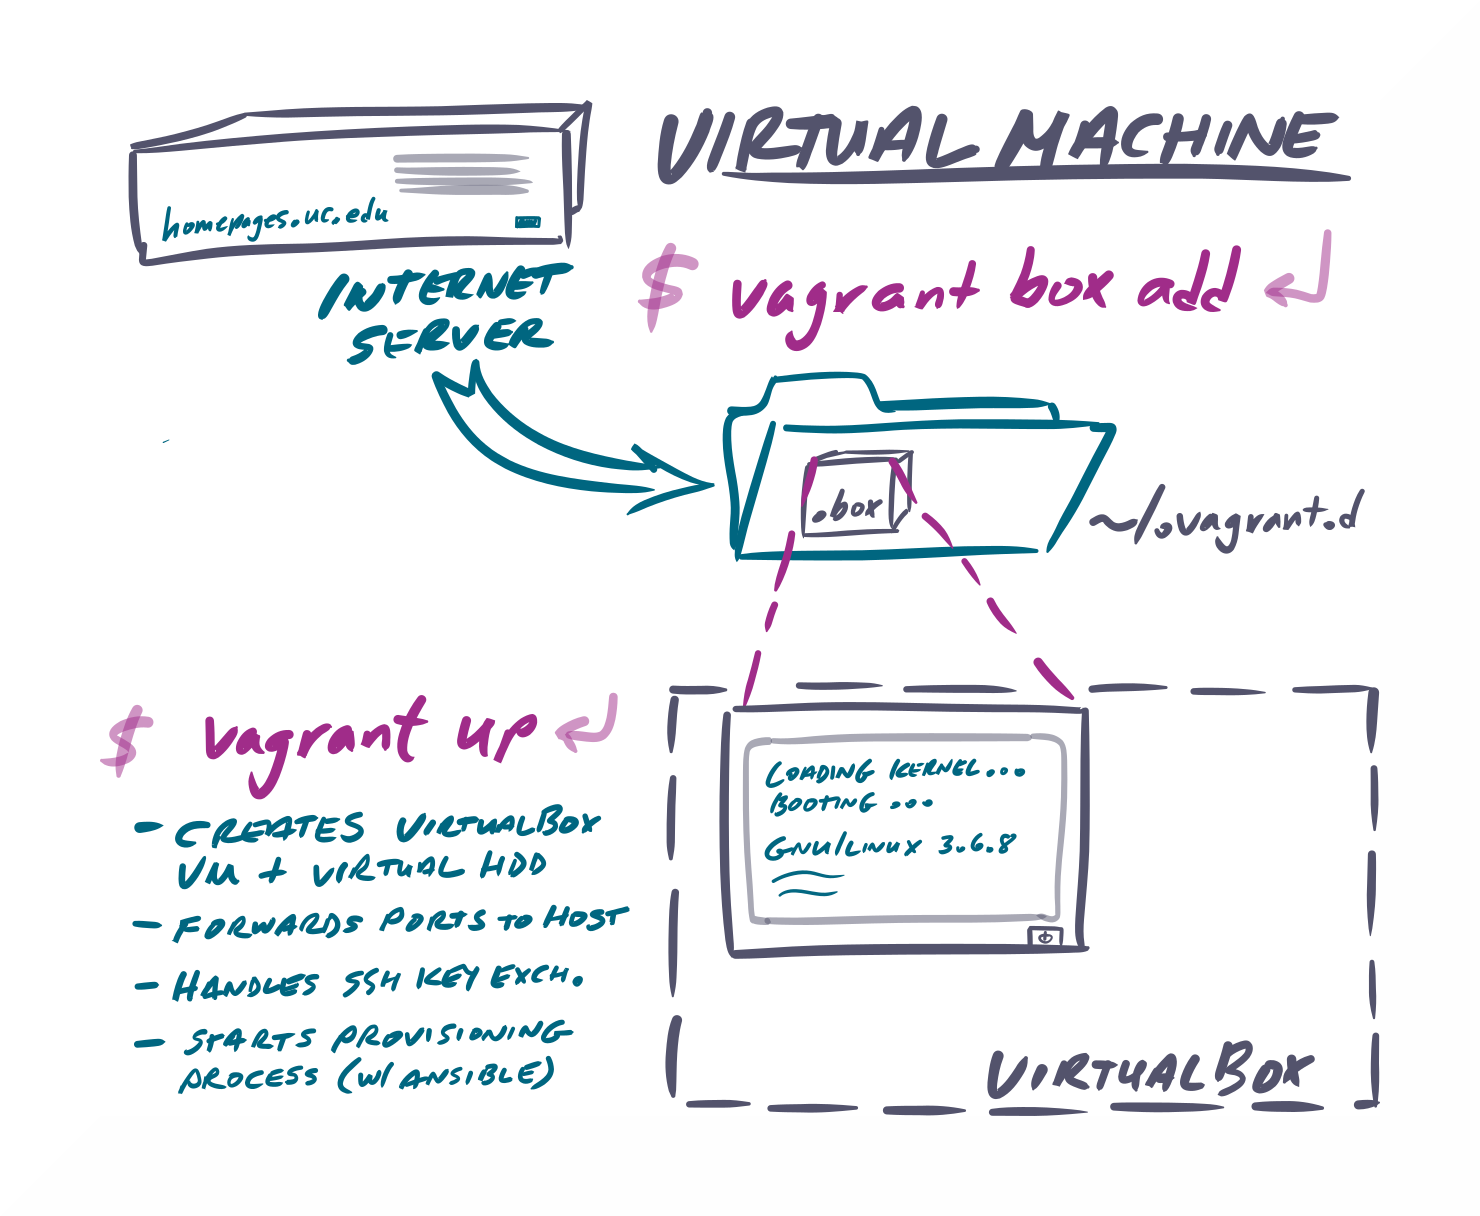 VIRTUAL MACHINE
homepages.uc.edu
INTERNET
SERVER
$ vagrant box add
.box
~/.vagrant.d
$ vagrant up
- CREATES VIRTUALBOX
VM + VIRTUAL HDD
- FORWARDS PORTS TO HOST
- HANDLES SSH KEY EXCH.
- STARTS PROVISIONING
PROCESS (W/ ANSIBLE)
LOADING KERNEL...
BOOTING ...
GNU/LINUX 3.6.8
VIRTUALBOX